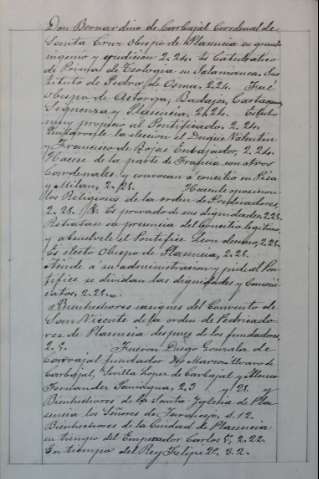 Don Bernardino de Carbajal Cardenal de
Santa Cruz obispo de Plasencia su grande
ingenio y erudicion 2.24. Es Catedratico
de Prima de Teologia en Salamanca. Ins
tituto de Pedro de Osma, 2.24. Fué
obispo de Astorga, Badajoz, Cartagena
Siguenza y Plasencia, 2.24. Estubo
muy proximo al Pontificado. 2.24.
la eleccion el Duque Valentin
y Francisco de Rojas Embajador, 2.24.
Hacese de la parte de Francia con otros
Cardenales y convocan a concilio en Pisa
y Milan, 2.28. Hacenle oposicion
los Religiosos de la orden de Predicadores
2.28. Es privado de sus dignidades 2.28.
en presencia del Concilio legitimo,
y absuelvele el Pontifice Leon decimo, 2.28.
Es electo Obispo de Plasencia, 2.28.
Atiende a su administracion y pide al Pon
tifice se dividan las dignidades y Canoni
catos, 2.28.
Bienhechores insignes del Convento de
San Vicente de la orden de Predicado
res de Plasencia despues de los fundadores
2.9. Fueron Diego Gonzalez de
Carvajal fundador
Carbajal, Sevilla Lopez de Carbajal y
Fernandez 2.3 y 21.
Bienhechores de la Santa Iglesia de Pla
sencia los Señores de
Bienhechores de la Ciudad de Plasencia
en tiempo del Emperador Carlos Vº, 2.22.
En tiempo del Rey Felipe 2º, 3.2.